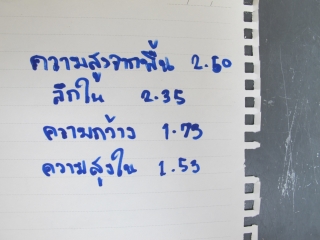 ความสูงจากพื้น 2.50
ลึกใน 2.35
ความกว้าง 1.73
ความสูงใน 1.53